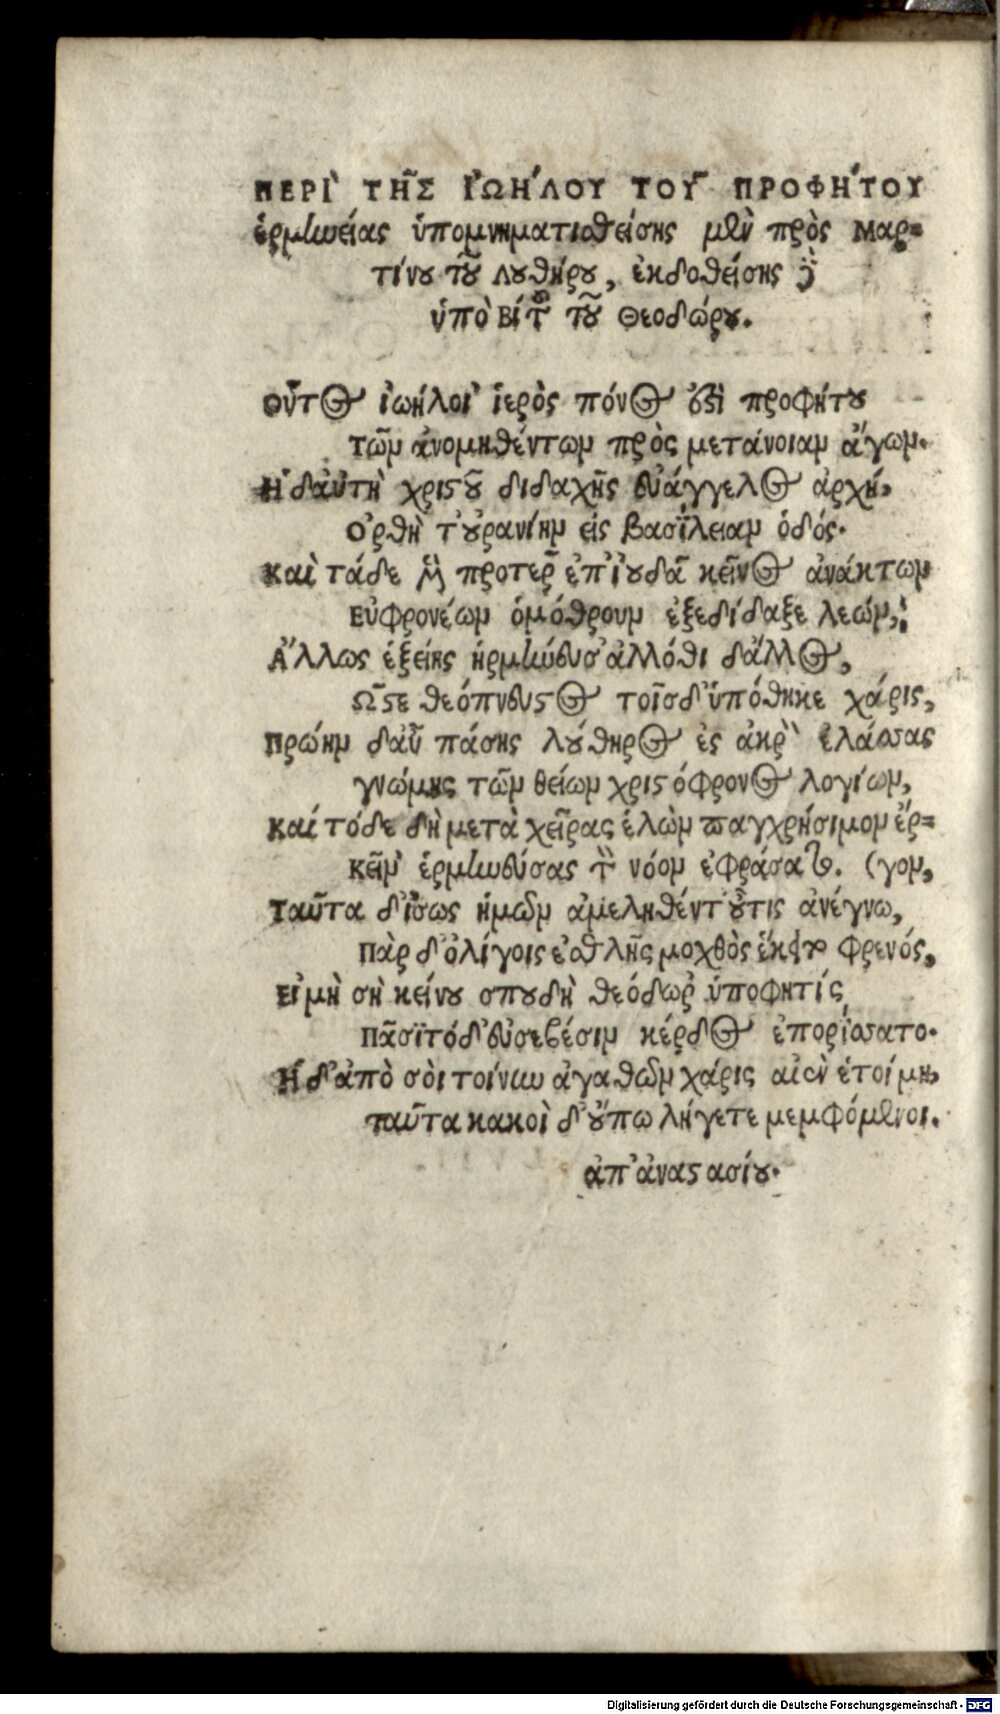 ΠΕΡῚ ΤΗ͂Σ ἸΩΉΛΟΥ ΤΟΥ͂ ΠΡΟΦΉΤΟΥ
ἑρμηνείας ὑπομνηματισθείσης μὲν πρὸς Μαρ=
τίνου τοῦ Λουθήρου, ἐκδοθείσης δὲ
ὑπὸ Βίτου τοῦ Θεοδώρου.
Οὗτος ἰωήλοι' ἱερὸς πόνος ἐστὶ προφήτου
Τῶν ἀνομηθέντων πρὸς μετάνοιαν ἄγων.
Ἡ δ' αὐτὴ χριστοῦ διδαχῆς εὐάγγελος ἀρχή,
Ὀρθὴ τ' οὐρανίην εἰς βασίλειαν ὁδός.
Καὶ τάδε μὲν προτεροῦ ἐπ' ἰουδᾶ κεῖνος ἀνάκτων
Εὐφρονέων ὁμόθρουν ἐξεδίδαξε λεών,
Ἄλλως ἑξείης ἡρμήνευσ' ἀλλόθι δ' ἄλλος,
Ὥστε θεόπνευστος τοῖσδ' ὑπόθηκε χάρις,
Πρώην δ' αὖ πάσης λούθηρος ἐς ἀκρὸν ἐλάσσας
γνώμης τῶν θείων χριστόφρονος λογίων,
Καί τόδε δὴ μετὰ χεῖρας ἑλὼν παγχρήσιμον ἔρ=
Κεῖν' ἑρμηνεύσας τὸν νόον ἐφράσατο. (γον,
Ταῦτα δ' ἴσως ἡμῶν ἀμεληθέντ' οὖτις ἀνέγνω,
Πὰρ δ' ὀλίγοις ἐσθλῆς μοχθὸς ἔκρυπτο φρενός,
Εἰ μὴ σὴ κείνου σπουδὴ θεόδωρ' ὑποφητίς
Πᾶσι τόδ' εὐσεβέσιν κέρδος ἐπορίσσατο.
Ἡ δ' ἀπὸ σὸι τοίνυν ἀγαθῶν χάρις αἰὲν ἑτοίμη,
ταῦτα κακοὶ δ' οὔπω λήγετε μεμφόμενοι.
ἀπ' ἀναστασίου.
Digitalisierung gefördert durch die Deutsche Forschungsgemeinschaft - DFG